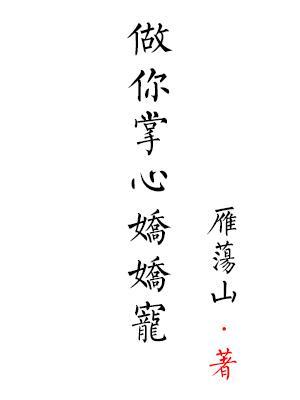 做你掌心嬌嬌寵
雁蕩山·著